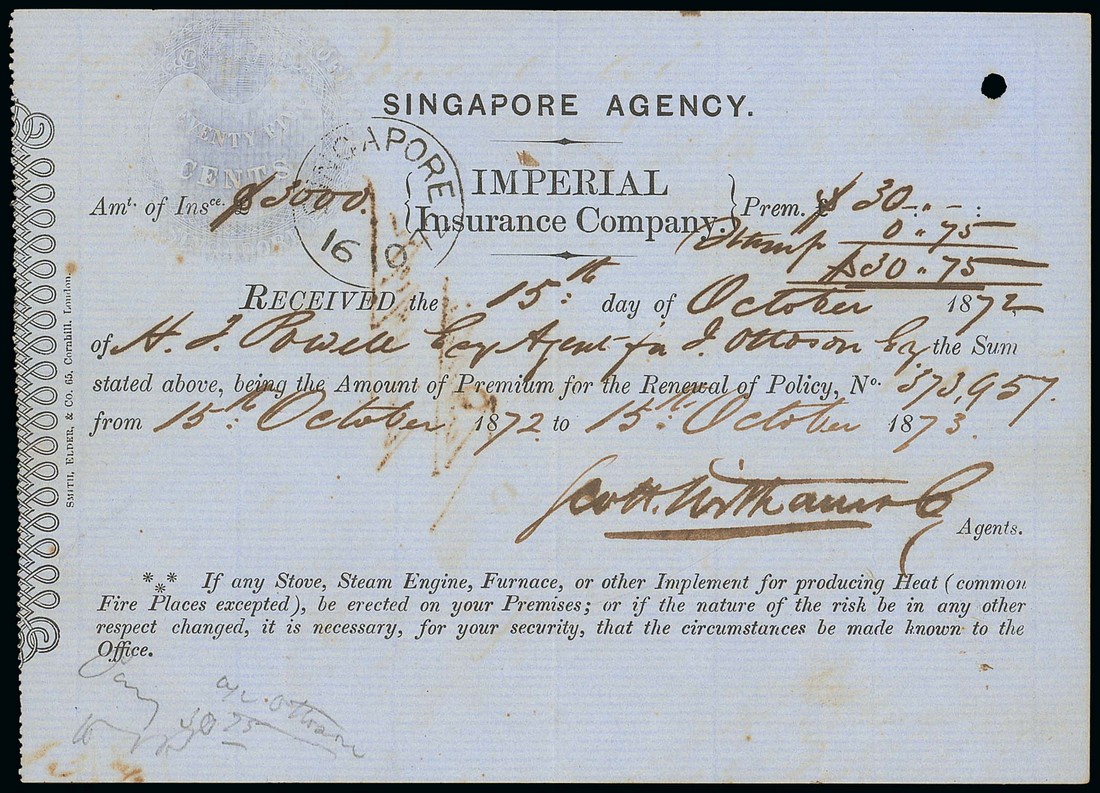 SINGAPORE AGENCY.
TWENTY FIVE
CENTS
SINGAPORE
16 O 72
IMPERIAL
Insurance Company.
Amt. of Insce. $3000.
Prem. $ 30 " - :
Stamp 0 " 75
$30 " 75
RECEIVED the 15th day of October 1872
of H. T. Powell Esq Agent for J. Ottoson Esq the Sum
stated above, being the Amount of Premium for the Renewal of Policy, No. 373,957.
from 15th October 1872 to 15th October 1873.
Agents.
*** If any Stove, Steam Engine, Furnace, or other Implement for producing Heat (common
Fire Places excepted), be erected on your Premises; or if the nature of the risk be in any other
respect changed, it is necessary, for your security, that the circumstances be made known to the
Office.
a/c Ottoson
30 75
SMITH, ELDER, & CO. 65, Cornhill, London.